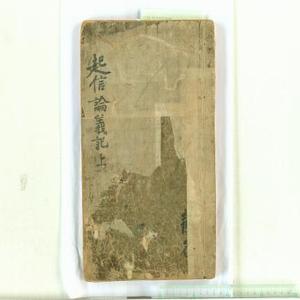 起信論義記上